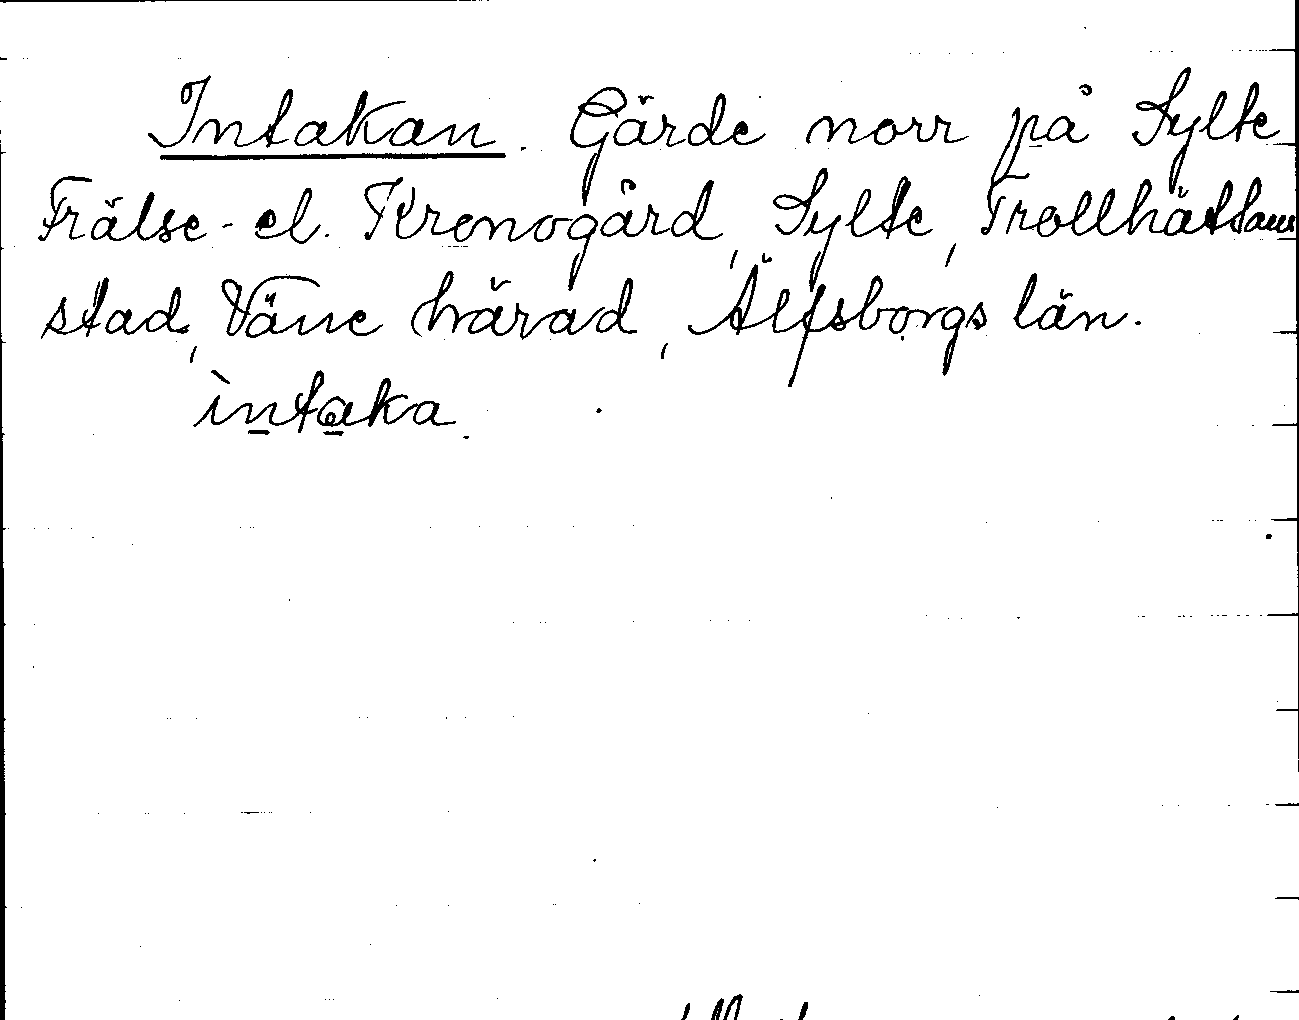 Intakan. Gärde norr på Sylte
Frälse- el. Kronogård, Sylte, Trollhättans
stad, Väne härad, Älfsborgs län.
ìntaka.